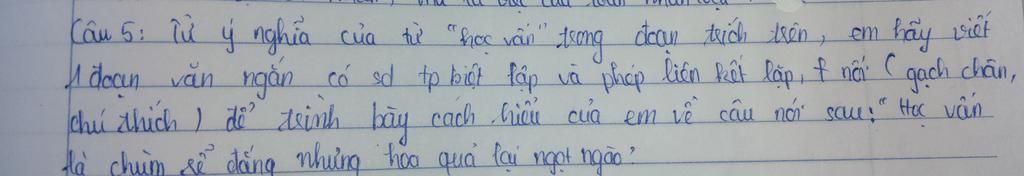 Câu 5: Từ ý nghĩa của từ "học vấn" trong đoạn trích trên, em hãy viết
1 đoạn văn ngắn có sd tp biệt lập và phép liên kết lặp, f nối (gạch chân,
chú thích) để trình bày cách hiểu của em về câu nói sau: "Học vấn
là chùm rễ đắng nhưng hoa quả lại ngọt ngào?